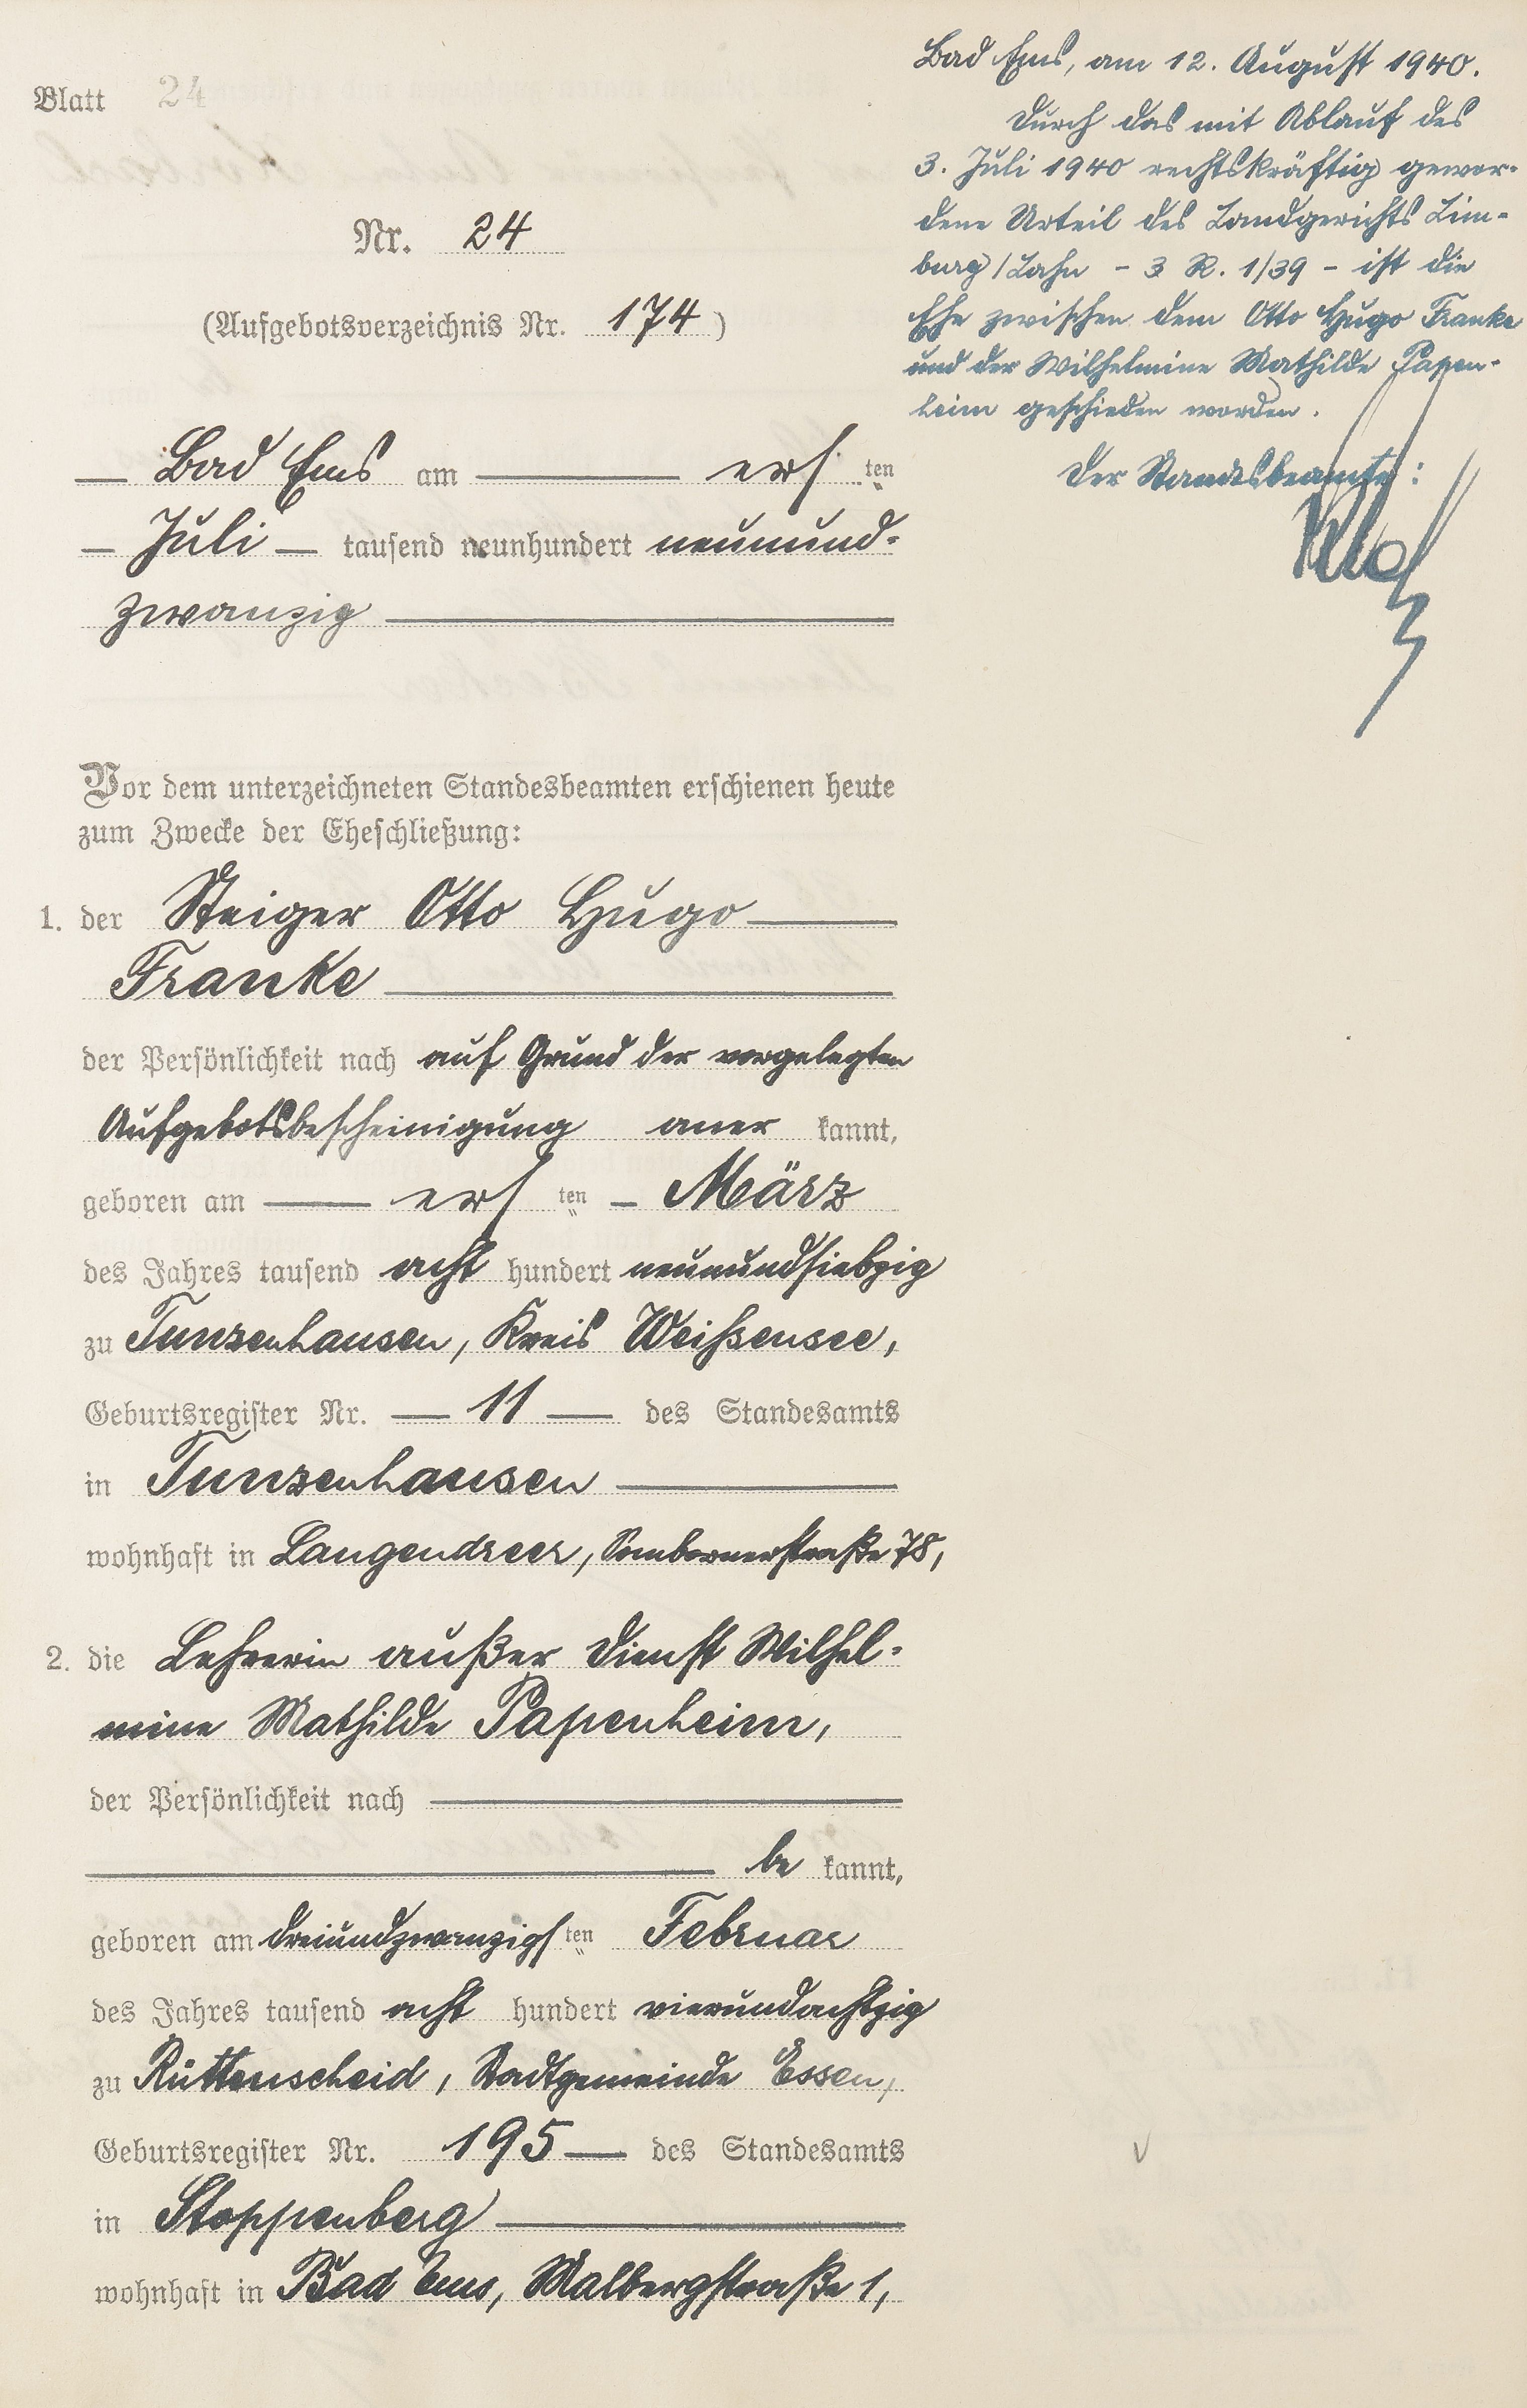 Blatt 24
Nr. 24
(Aufgebotsverzeichnis Nr. 174)
Bad Ems am ers ten
Juli tausend neunhundert neunund-
zwanzig
Vor dem unterzeichneten Standesbeamten erschienen heute
zum Zwecke der Eheschließung:
1. der Steiger Otto Hugo
Franke
der Persönlichkeit nach auf Grund der vorgelegten
Aufgebotsbescheinigung aner kannt,
geboren am ers ten März
des Jahres tausend acht hundert neunundsiebzig
zu Tunzenhausen, Kreis Weißensee,
Geburtsregister Nr. 11 des Standesamts
in Tunzenhausen
wohnhaft in Langendreer, Sombornerstraße 78,
2. die Lehrerin außer Dienst Wilhel-
mine Mathilde Papenheim,
der Persönlichkeit nach
be kannt,
geboren am dreiundzwanzigs ten Februar
des Jahres tausend acht hundert vierundachtzig
zu Rüttenscheid, Stadtgemeinde Essen,
Geburtsregister Nr. 195 des Standesamts
in Stoppenberg
wohnhaft in Bad Ems, Malbergstraße 1,
Bad Ems, am 12. August 1940.
Durch das mit Ablauf des
3. Juli 1940 rechtskräftig gewor-
dene Urteil des Landgerichts Lim-
burg/Lahn - 3 R. 1/39 - ist die
Ehe zwischen dem Otto Hugo Franke
und der Wilhelmine Mathilde Papen-
heim geschieden worden.
Der Standesbeamte: